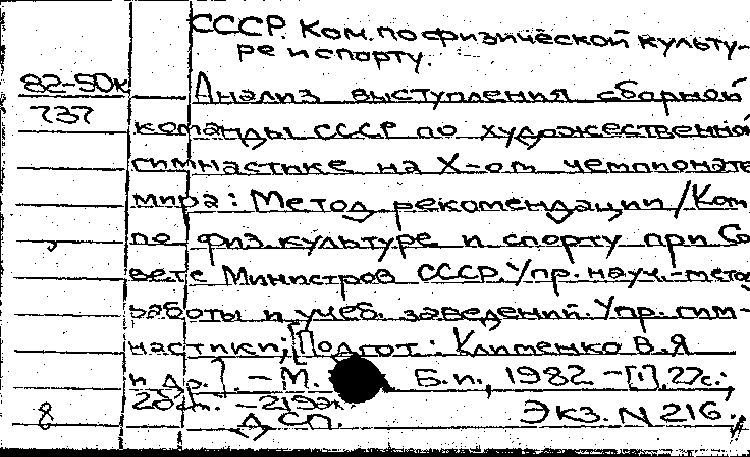 СССР. Ком. по физической культу-
ре и спорту.
82-50к Анализ выступления сборной
737 команды СССР по художественной
гимнастике на X-ом чемпионате
мира: Метод. рекомендации / Ком.
по физ. культуре и спорту при Со
вете Министров СССР. Упр. науч.-метод
работы и учеб. заведений. Упр. гим-
настики; [Подгот.: Клименко В.Я
и др.]. - М. Б.и., 1982. - [1], 27с.;
Экз. N 216.
ДСП.
8